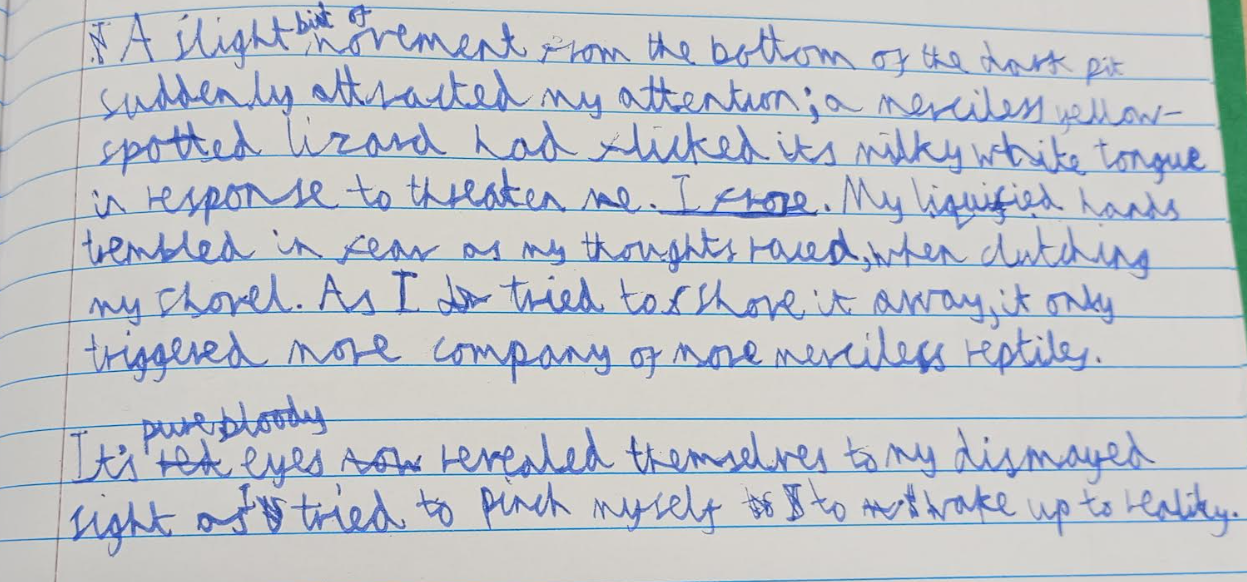 A slight bit of movement from the bottom of the dark pit
suddenly attracted my attention; a merciless yellow-
spotted lizard had flicked its milky white tongue
in response to threaten me. I froze. My liquified hands
trembled in fear as my thoughts raced, when clutching
my shovel. As I tried to shove it away, it only
triggered more company of more merciless reptiles.
pure bloody
It's red eyes revealed themselves to my dismayed
sight as I tried to pinch myself to wake up to reality.